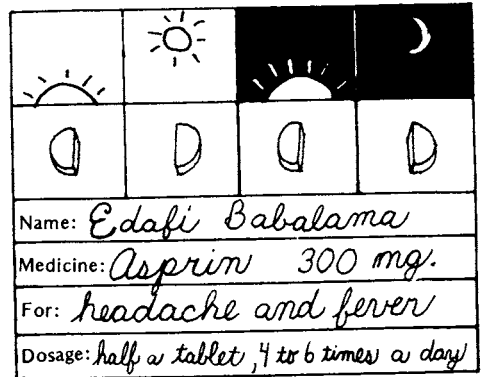 Name: Edafi Babalama
Medicine: Asprin 300 mg.
For: headache and fever
Dosage: half a tablet, 4 to 6 times a day